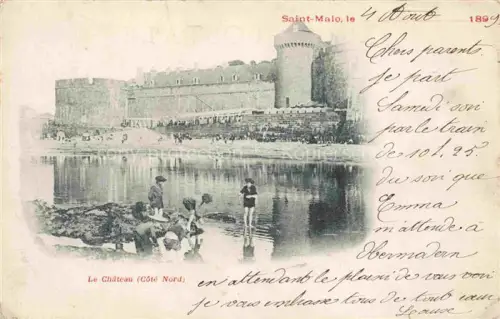 Saint-Malo, le 4 Août 1899
Chers parents.
je part
Samedi soir
par le train
de 10h. 25.
du soir que
Emma
m'attende à
Le Château (Côté Nord)
en attendant le plaisir de vous voir
je vous embrasse tous de tout cœur
Louise